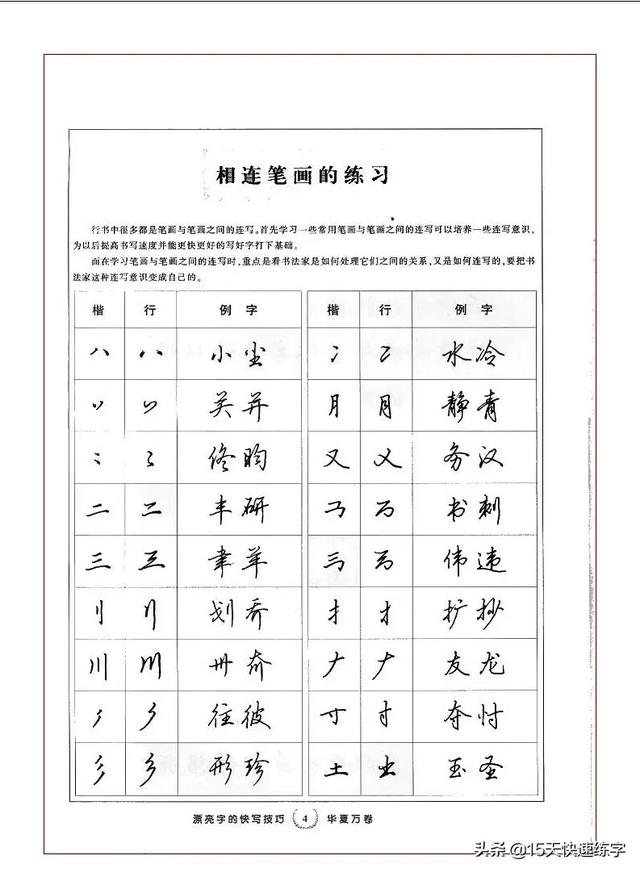 相连笔画的练习
行书中很多都是笔画与笔画之间的连写。首先学习一些常用笔画与笔画之间的连写可以培养一些连写意识，
为以后提高书写速度并能更快更好的写好字打下基础。
而在学习笔画与笔画之间的连写时，重点是看书法家是如何处理它们之间的关系，又是如何连写的，要把书
法家这种连写意识变成自己的。
楷 行 例字 楷 行 例字
八 八 小尘 冫 冫 水冷
丷 丷 关并 月 月 静青
修昀 又 又 务汉
二 二 丰研 书刺
三 三 聿羊 伟违
刂 刂 划乔 扌 扌 扩抄
川 川 卅奇 𠂇 𠂇 友龙
往彼 寸 寸 夺忖
彡 彡 形珍 土 土 玉圣
漂亮字的快写技巧 4 华夏万卷
头条 @15天快速练字